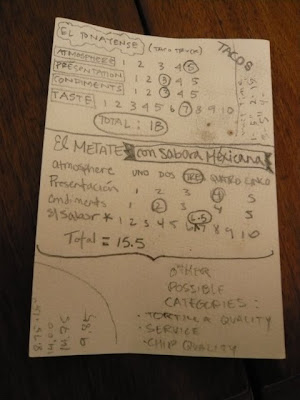 EL TONATENSE
TACOS
ATMOSPHERE 1 2 3 4 5
PRESENTATION 1 2 3 4 5
CONDIMENTS 1 2 3 4 5
TASTE 1 2 3 4 5 6 7 8 9 10
TOTAL: 18
El METATE con Sabora Méxicana
atmosphere UNO DOS TRES QUATRO CINCO
Presentación 1 2 3 4 5
Condiments 1 2 3 4 5
El Sabor * 1 2 3 4 5 6.5 7 8 9 10
Total = 15.5
OTHER
POSSIBLE
CATEGORIES:
• TORTILLA QUALITY
• SERVICE
• CHIP QUALITY